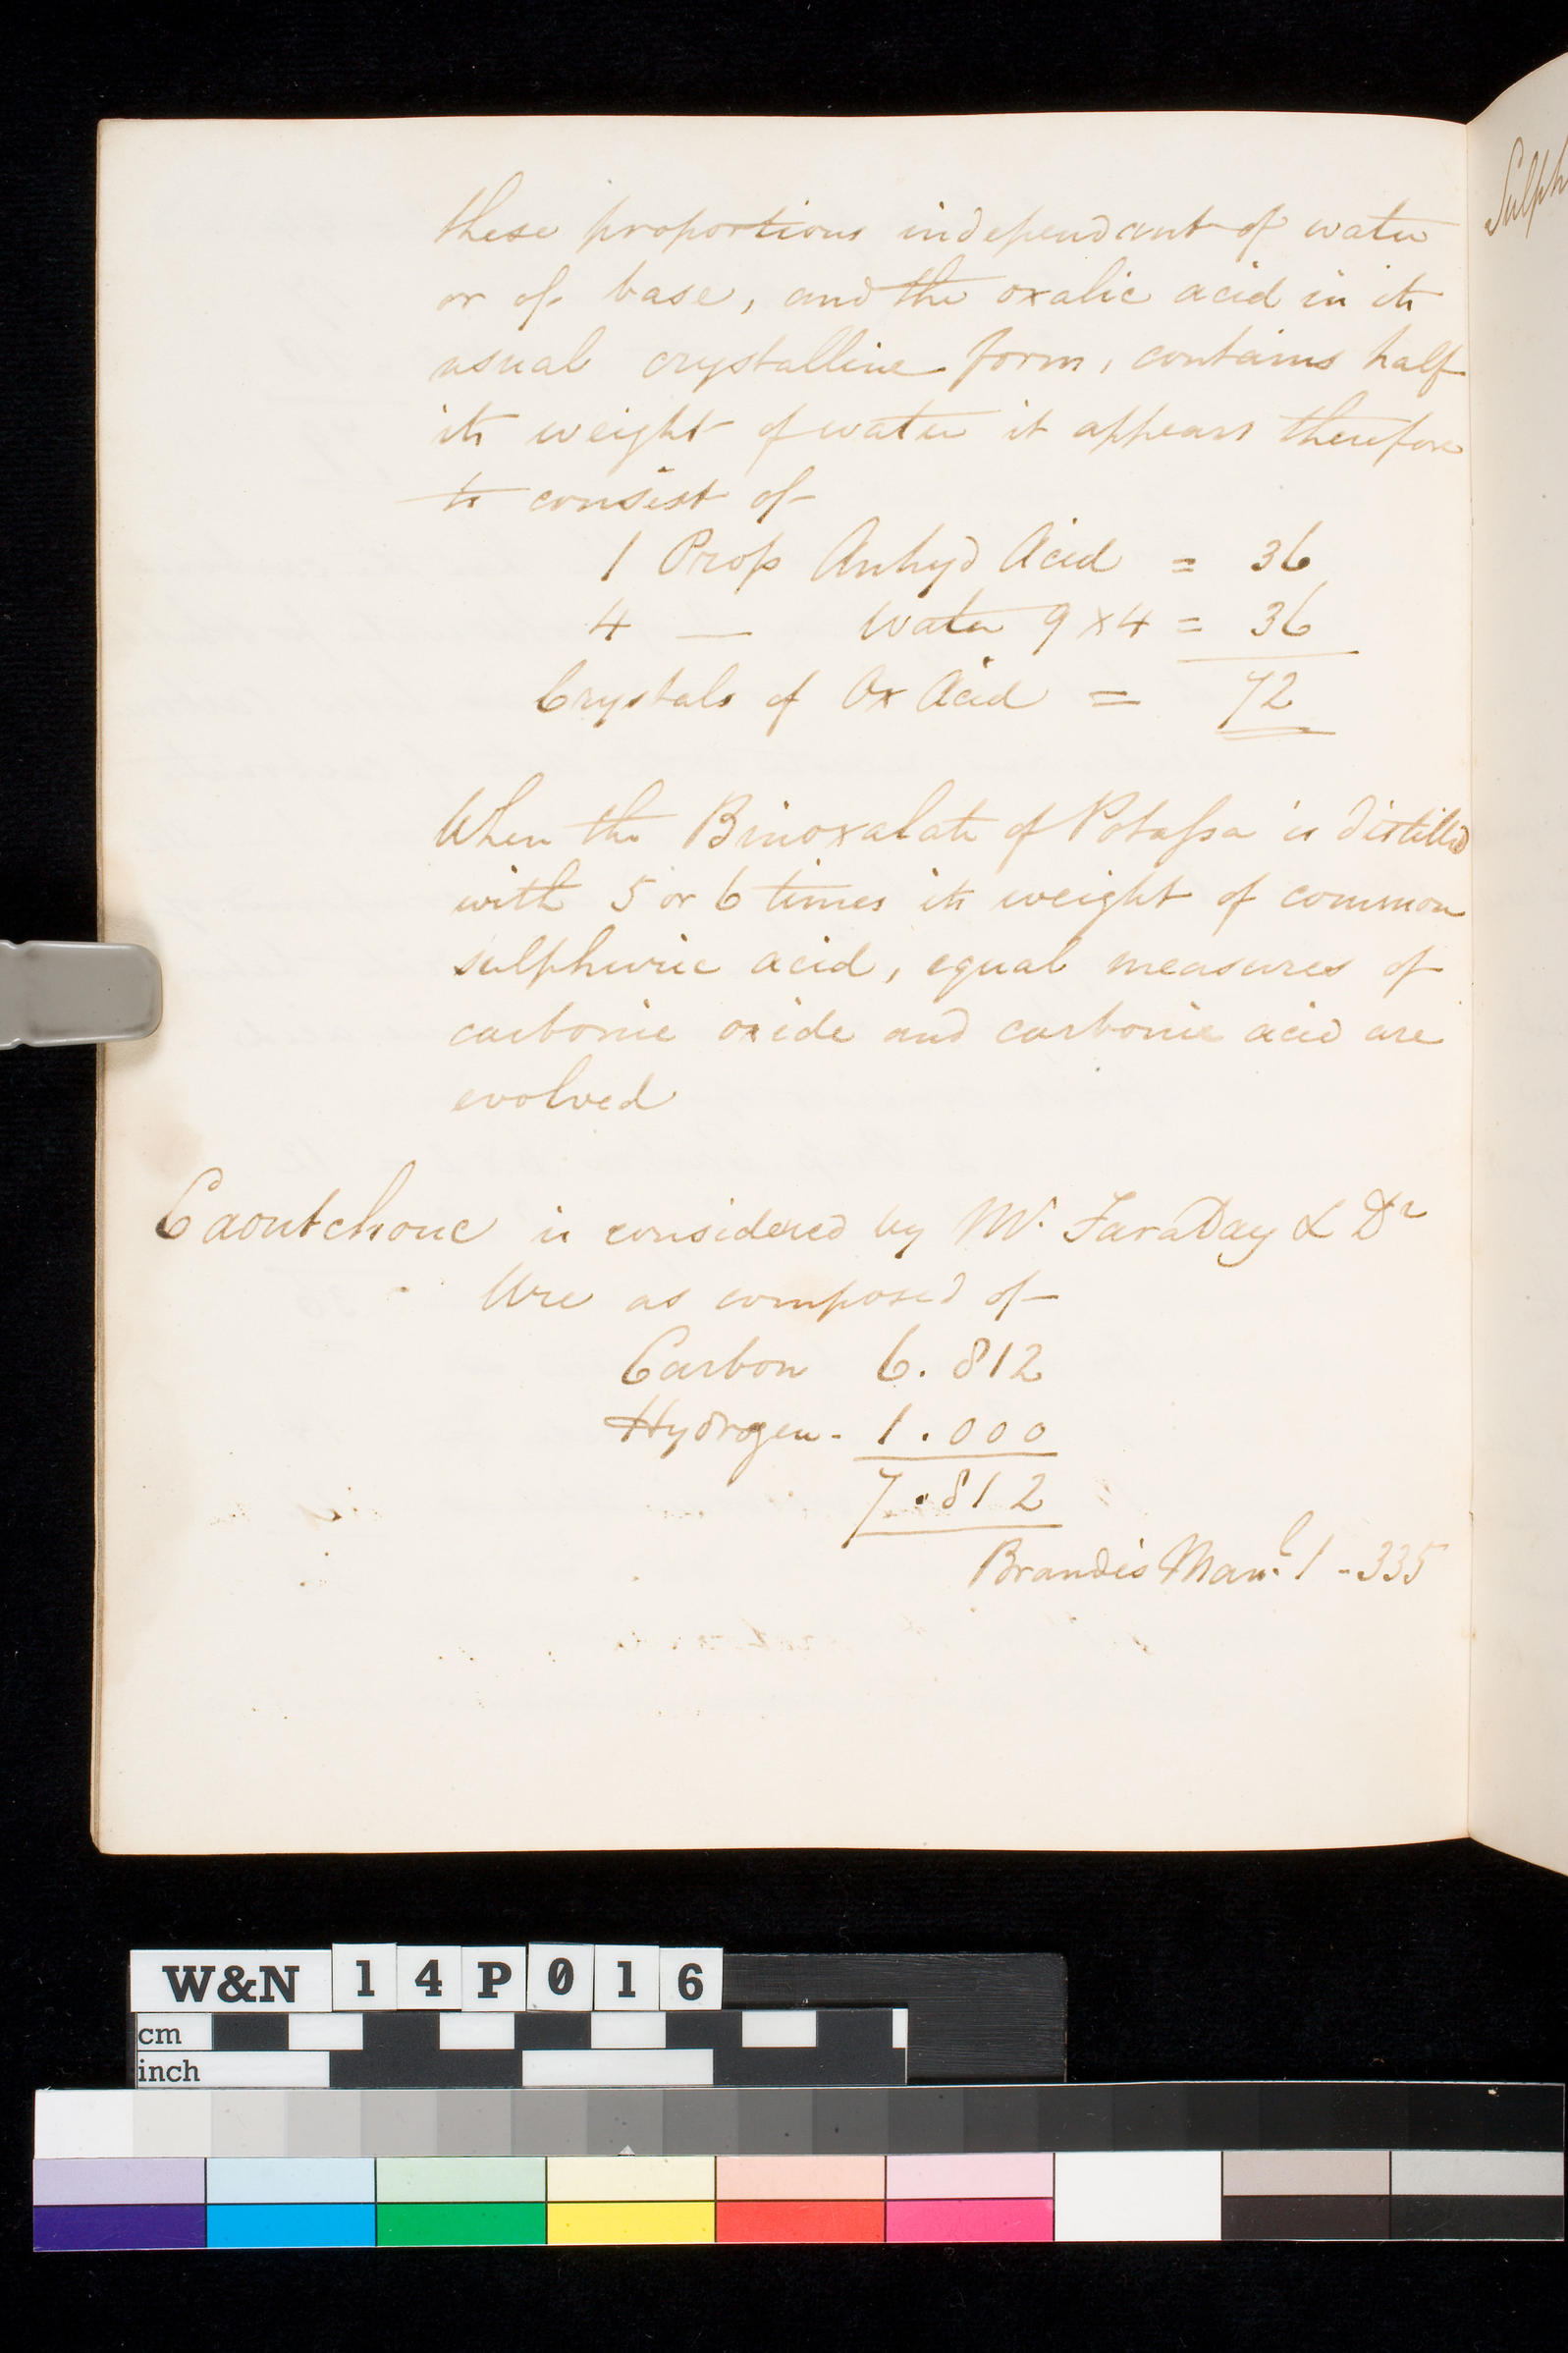 these proportions independant of water
or of base, and the oxalic acid in its
usual crystalline form, contains half
its weight of water it appears therefore
to consist of
1 Prop Anhyd Acid = 36
4 — Water 9 x 4 = 36
Crystals of Ox Acid = 72
When the Binoxalate of Potassa is distilled
with 5 or 6 times its weight of common
sulphuric acid, equal measures of
carbonic oxide and carbonic acid are
evolved
Caoutchouc is considered by Mr. FaraDay & Dr
Ure as composed of
Carbon 6.812
Hydrogen - 1.000
7.812
Brandis Manl. 1 - 335
Sulph
W&N 14P016
cm
inch